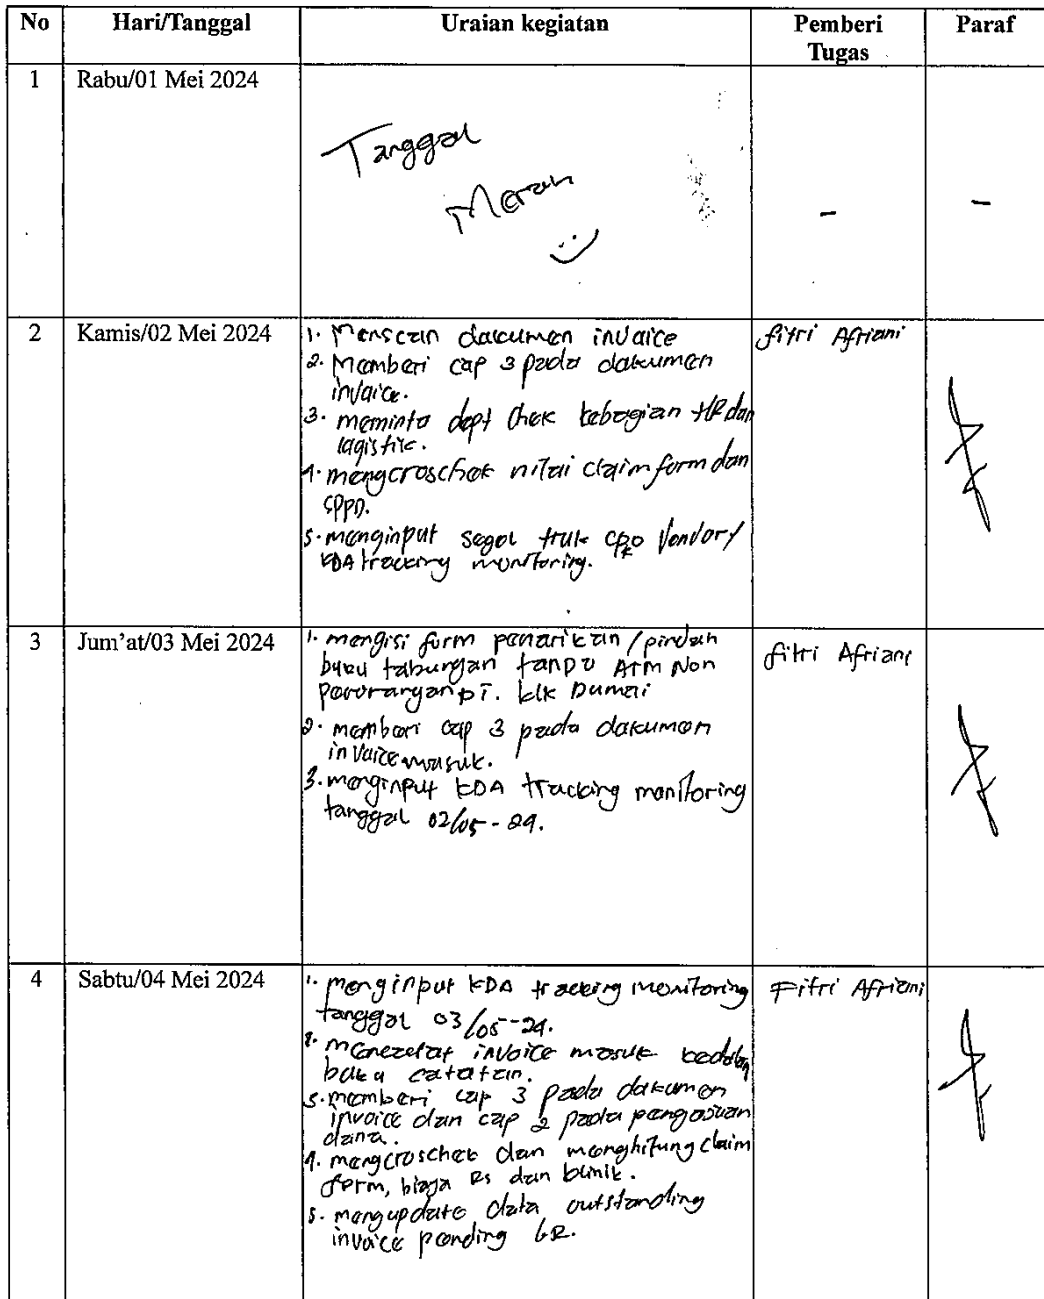 No Hari/Tanggal Uraian kegiatan Pemberi Paraf
Tugas
1 Rabu/01 Mei 2024
Tanggal
Merah
- -
2 Kamis/02 Mei 2024 1. Menscan dokumen invoice Fitri Afriani
2. Memberi cap 3 pada dokumen
invoice.
3. meminta dept Chek kebagian HR dan
logistic.
4. mengcroschek nilai claim form dan
SPPD.
5. menginput segel truk CPO Vendor/
KDA tracking monitoring.
3 Jum'at/03 Mei 2024 1. mengisi form penarikan/pindah Fitri Afriani
buku tabungan tanpa ATM Non
perorangan PT. KLK Dumai
2. memberi cap 3 pada dokumen
invoice masuk.
3. menginput KDA tracking monitoring
tanggal 02/05-24.
4 Sabtu/04 Mei 2024 1. menginput KDA tracking monitoring Fitri Afriani
tanggal 03/05-24.
2. mencatat invoice masuk kedalam
buku catatan.
3. memberi cap 3 pada dokumen
invoice dan cap 2 pada pengajuan
dana.
4. mengcroschek dan menghitung claim
form, biaya RS dan klinik.
5. mengupdate data outstanding
invoice pending GR.